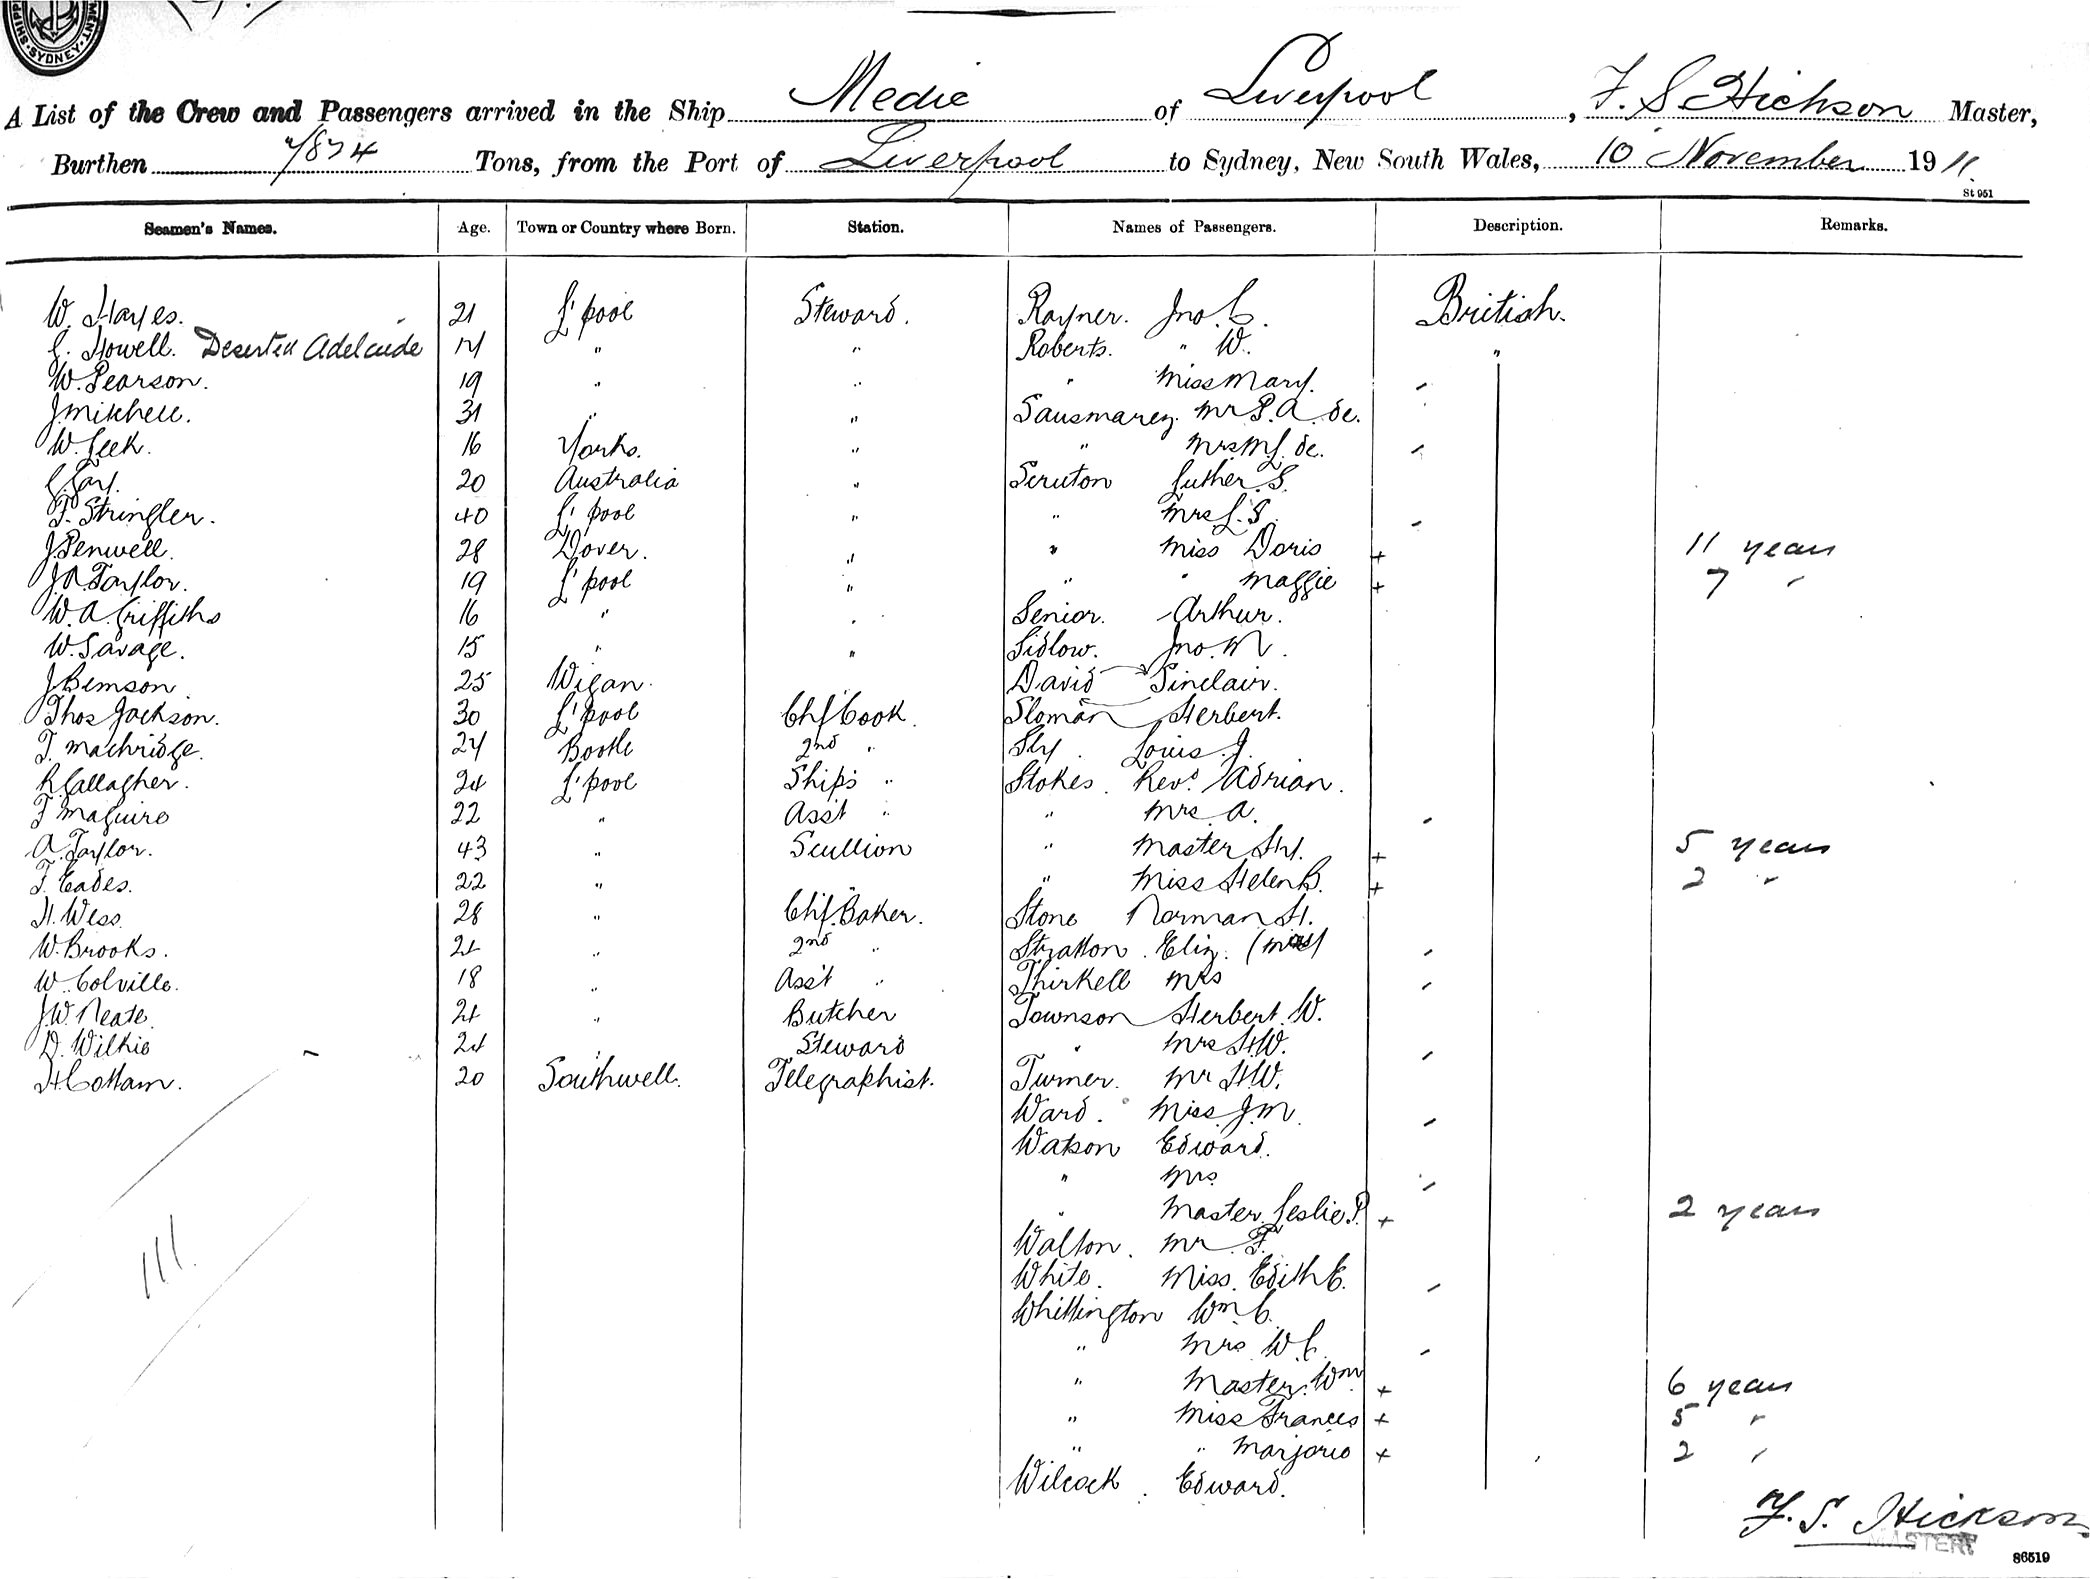 SHIPP MENT SYDNEY
A List of the Crew and Passengers arrived in the Ship Medic of Liverpool, F. S. Hickson Master,
Burthen 7/874 Tons, from the Port of Liverpool to Sydney, New South Wales, 10 November 1911
St 951
Seamen's Names. Age. Town or Country where Born. Station. Names of Passengers. Description. Remarks.
W. Hayes. 21 L'pool Steward. Rayner. Jno. C. British.
Howell. Deserted Adelaide " " Roberts. " W. "
W. Pearson. 19 " " " Miss Mary.
J. Mitchell. 31 " " Sausmarez. Mr P. A. de.
W. Leek. 16 Yorks. " " Mrs M L. de.
20 Australia " Scruton Luther. S.
F. Stringler. 40 L'pool " " Mrs L. S.
J. Penwell. 28 Dover. " " Miss Doris + 11 years
J. A. Taylor. 19 L'pool " " " Maggie + 7 "
W. A. Griffiths 16 " . Senior. Arthur.
W. Savage. 15 " " Sidlow. Jno. M.
J Bemson. 25 Wigan. David Sinclair.
Thos Jackson. 30 L'pool Chf Cook. Sloman Herbert.
T. Machridge. 24 Bootle 2nd " Sly. Louis. J.
R. Gallagher. 24 L'pool Ships " Stokes. Revd. Adrian.
F Maguire 22 " Asst " " Mrs. A.
A. Taylor. 43 " Scullion " Master Hy. + 5 years
T. Eades. 22 " " " Miss Helen B. + 2 "
H. Wess. 28 " Chf. Baker. Stone Norman H.
W. Brooks. 21 " 2nd " Stratton. Eliz.
W. Colville. 18 " Asst " Thirkell Mrs
J. W. Neate. 21 " Butcher Townson Herbert. W.
D. Wilkie 24 " Steward " Mrs H W.
H. Cottam. 20 Southwell. Telegraphist. Turner. Mr H. W.
Ward. Miss. J. M.
Watson Edward.
" Mrs
" Master. Leslie. P. + 2 years
Walton. Mr. F.
White. Miss. Edith E.
Whittington Wm C.
" Mrs W. C.
" Master. Wm + 6 years
" Miss Frances + 5 "
" " Marjorie + 2 "
Wilcock. Edward.
111
F. S. Hickson
MASTER
86519